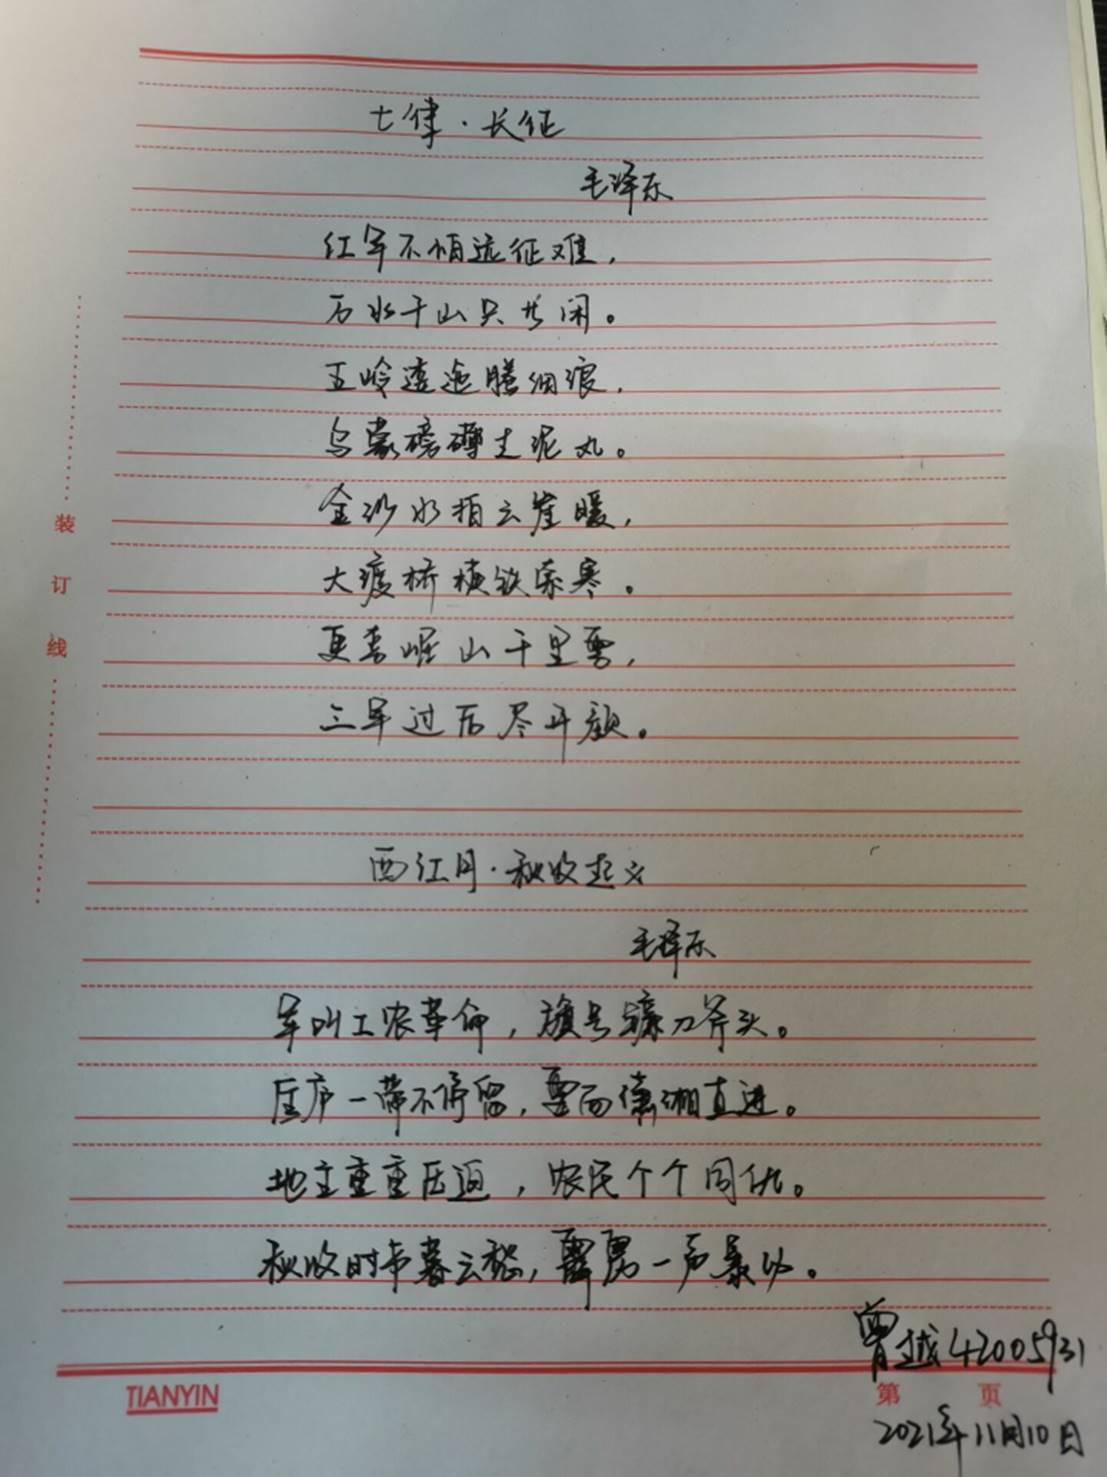 七律·长征
毛泽东
红军不怕远征难，
万水千山只等闲。
五岭逶迤腾细浪，
乌蒙磅礴走泥丸。
金沙水拍云崖暖，
大渡桥横铁索寒。
更喜岷山千里雪，
三军过后尽开颜。
西江月·秋收起义
毛泽东
军叫工农革命，旗号镰刀斧头。
匡庐一带不停留，要向潇湘直进。
地主重重压迫，农民个个同仇。
秋收时节暮云愁，霹雳一声暴动。
曾越42005931
2021年11月10日
装订线
TIANYIN
第 页